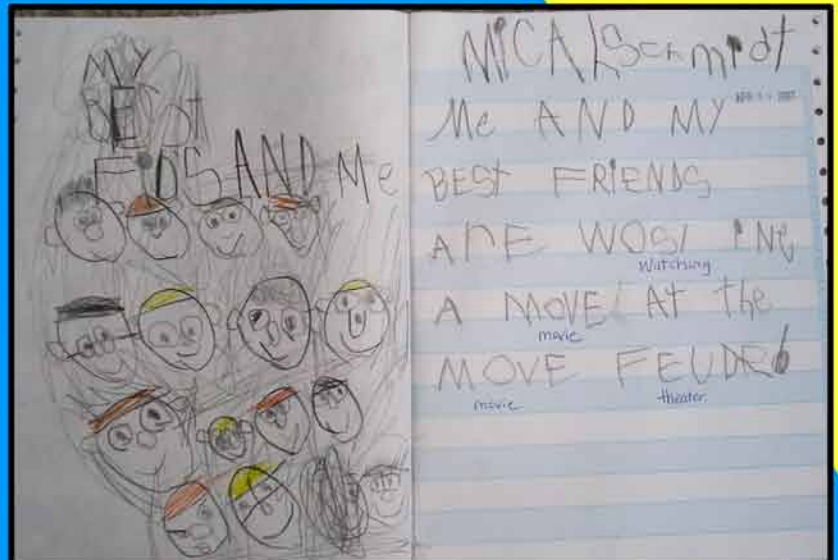 MY
BEst
FiDS AND Me
MICAL Schmidt
Me AND MY
BEST FRIENDS
ARE WOSI ING
watching
A MOVE At the
movie
MOVE FEUDR
movie theater